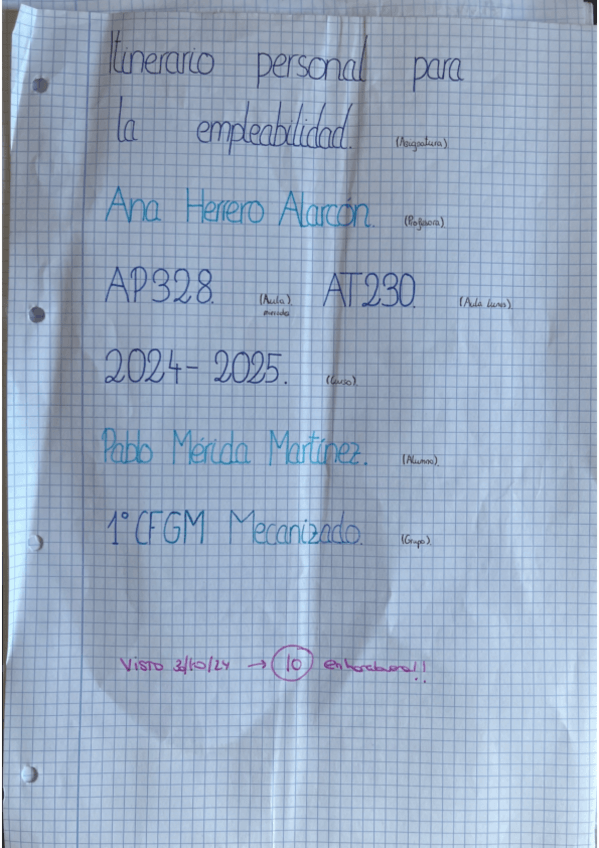 Itinerario personal para
la empleabilidad. (Asignatura)
Ana Herrero Alarcón. (Profesora)
AP328. (Aula) AT230. (Aula lunes)
2024-2025. (Curso)
Pablo Mérida Martínez. (Alumno)
1º CFGM Mecanizado. (Grupo)
Visto 3/10/24 → 10 enhorabuena!!